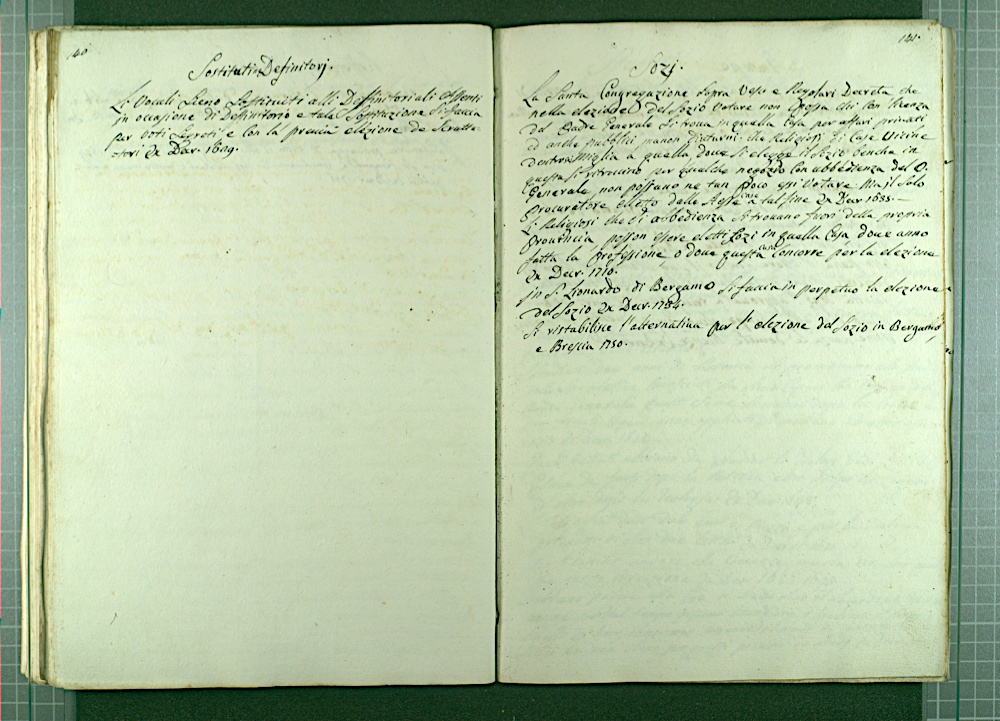 140
Sostituti Definitorj.
Li Vocali Sieno Sostituiti alli Deffinitoriali Assenti
in occasione di Deffinitorio e tale Sostituzione si faccia
per voti Segreti e con la previa elezione de Scrutta-
tori Ex Decr. 1609.
141.
Sozj.
La Santa Congregazione sopra Vesc. e Regolari Decreta che
nella elezione del Sozio Votare non possa chi con licenza
del Padre Generale si trova in quella Casa per affari privati
ed anche pubblici manco Diuturni. Li Religiosi di Case Vicine
dentro Miglia a quella dove si elegge il Sozio benche in
questa si ritrovino per qualche negozio con obbedienza del P.
Generale, non possano ne tan poco essi Votare Ma il Solo
Procuratore eletto dalle stesse Case a tal fine Ex Decr. 1685.
Li Religiosi che d'obbedienza si trovano fuori della propria
Provincia posson essere eletti Sozi in quella Casa dove anno
fatta la Professione, o dove questa Casa concorre per la elezione
Ex Decr. 1710.
In S. Lionardo di Bergamo si faccia in perpetuo la elezione
del Sozio Ex Decr. 1784.
Si ristabilisce l'alternativa per l'elezione del Sozio in Bergamo,
e Brescia 1750.